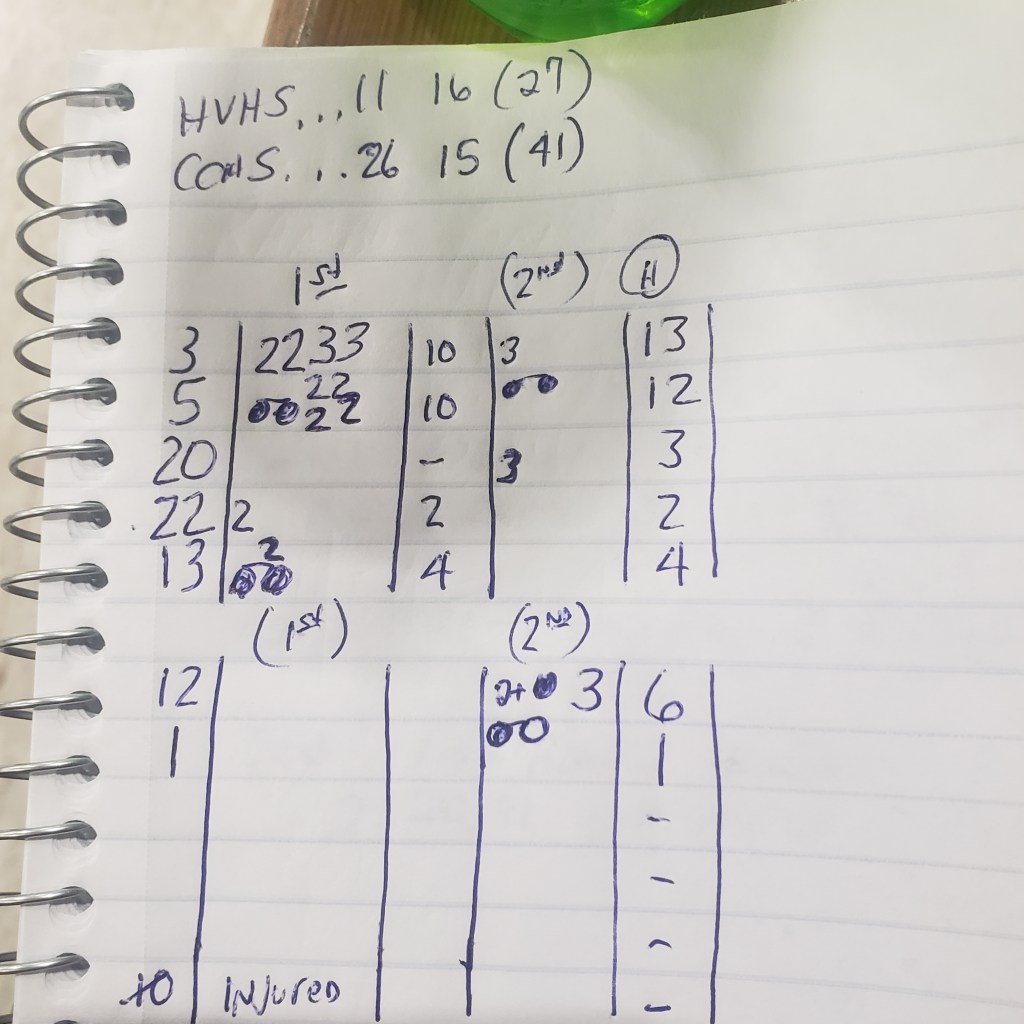 HVHS...11 16 (27)
COHS...26 15 (41)
1st (2nd) H
3 2233 10 3 13
5 22 22 10 12
20 - 3 3
22 2 2 2
13 2 4 4
(1st) (2nd)
12 2+ 3 6
1 1
-
-
-
10 INJURED -